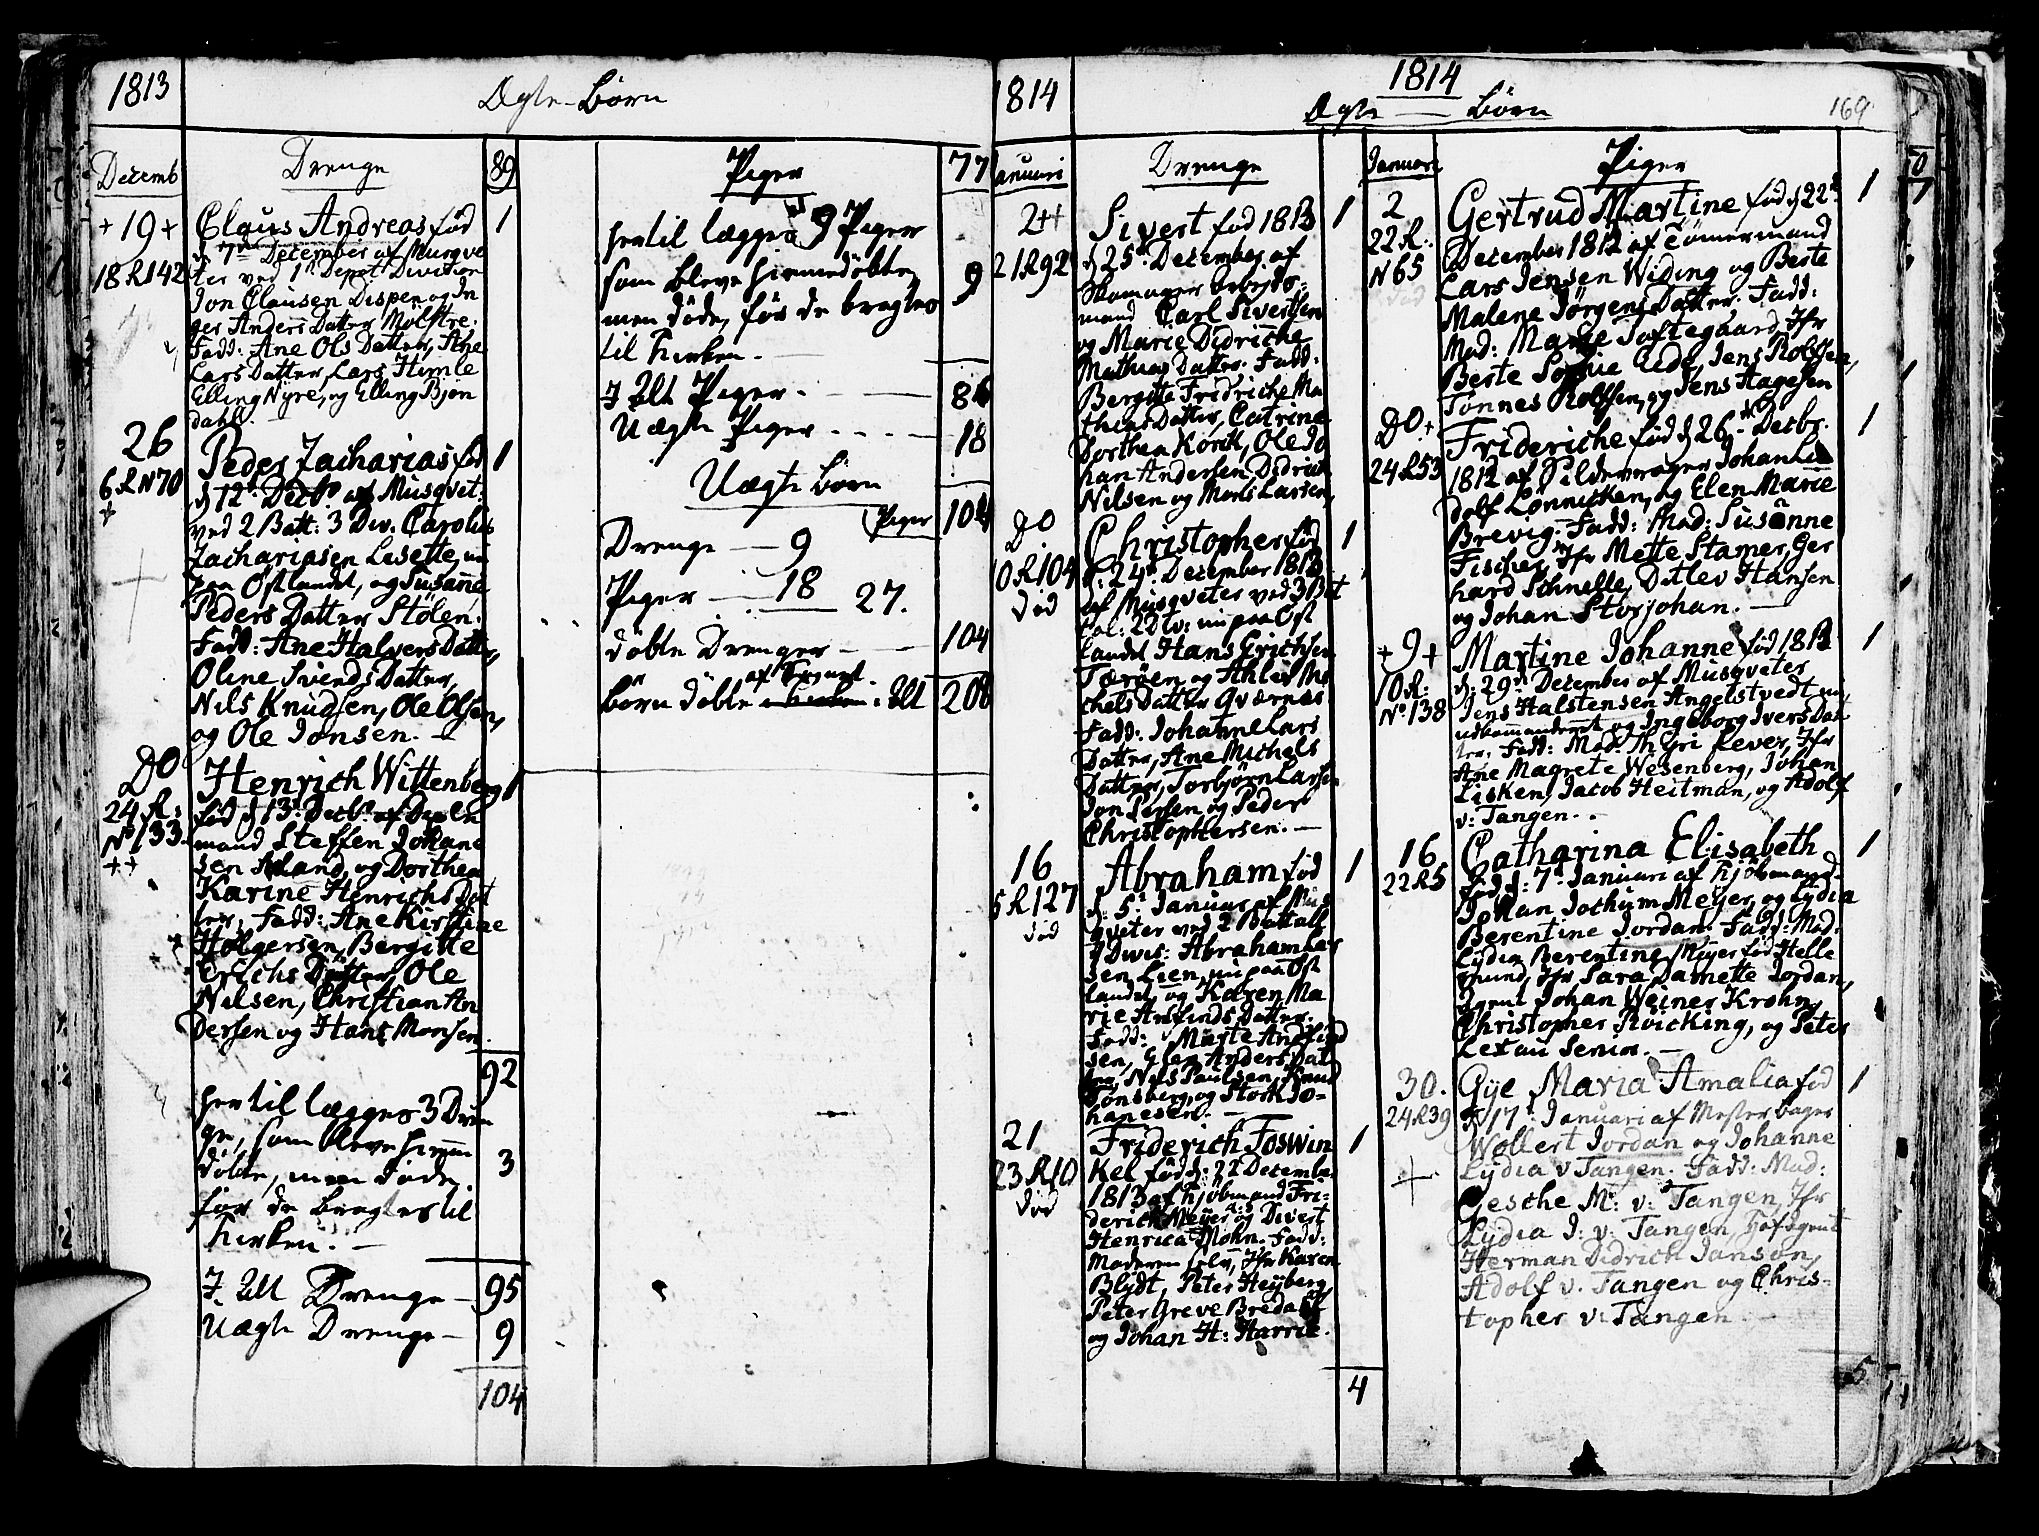 1813
Ægte-Børn
Decemb
Drenge
89
+19+
18 R 142
Claus Andreas fød
1
d. 7de December af Musqve
ter ved 1t Depot Division
Jon Clausen Dispen og In
ger Anders Datter Mølstre.
Fadd: Ane Ols Datter, Ane
Lars Datter, Lars Himle
Elling Nÿre, og Elling Bjøn
dahl.
26
6 R N 70
+
Peder Zacharias fød
1
d 12t Decbr af Musqvet:
ved 2 Batt: 3 Div. Carolus
Zachariasen Lisette, nu
paa Østlandet, og Susanne
Peders Datter Stölen.
Fadd: Ane Halvers Datter,
Oline Svends Datter,
Nils Knudsen, Ole Olsen,
og Ole Jonsen.
DO
24 R:
No 133.
++
Henrich Wittenberg
1
fød d 13t Decbr af
mand Steffen Johane
sen , og Dorthea
Karine Henrichs Dat
ter, Fadd: Ane Kirstine
Holgersen, Bergitte
Erichs Datter, Ole
Nilsen, Christian An
dersen og Hans Monsen.
92
hertil lægges 3 Dren
ge, som bleve hiemme
døbte, men døde,
før de bragtes til
Kirken.
3
I Alt Drenge
95
Uægte Drenge
9
104
Piger
77
hertil lægges 9 Piger
som bleve hiemmedøbte,
men døde, før de bragtes
til Kirken.
9
I Alt Piger
86
Uægte Piger
18
Uægte Børn
Piger
104
Drenge 9
Piger 18 27.
døbte Drenger
104
børn døbte i Alt
208
1814
1814
Ægte Børn
169
Januari
Drenge
2++
21 R 92
Sivert fød 1813
1
d 25t December af
Skomager Arbejds-
mand Carl Sivertsen
og Marie Didriche
Mathias Datter. Fadd:
Bergitte Fridriche Ma
thias Datter, Catrine
Dorthea Könik, Ole Jo
han Andersen, Didrich
Nilsen og Mons Larsen,
DO
10 R 104
død
Christopher fød
1
d: 24t December 1813
af Musqveter ved 3 Bat
tal: 2 Div: nu paa Øst
landet Hans Erichsen
Tæröen og Ahlis Mi
chels Datter Qværnes
Fadd: Johanne Lars
Datter, Ane Michels
Datter, Torbjørn Larsen
Jon Persen og Peder
Christophersen.
16
5 R 127
død
Abraham fød
1
d: 5t Januar af Mus
qveter ved 2 Battall
Divis: Abraham Lar
sen Lien, nu paa Øst
landet, og Karen Ma
rie Amunds Datter.
Fadd: Marte And
sen, Elen Anders Dat
ter, Nils Paulsen, Knud
Tonsberg, og Stork Jo-
hanesen.
21
23 R 10
død
Friderich Foswin
1
Kel fød d: 22 Decembe
1813 af Kjøbmand Fri-
derich Meÿer og Divert
Henrica Mohn. Fadd:
Moderen selv, Jfr Karen
Blÿdt, Peter Heÿberg
Peter Greve Bredahl
og Johan H: Harrie.
4
Januari
Piger
2
22 R:
N 65
død
Gertrud Martine fød d 22t
1
December 1812 af Tømermand
Lars Jensen Widing og Berte
Malene Jørgens Datter. Fadd:
Mad: Marie Toftegaard, Jfr
Berte Sophie Ude, Jens Rolfsen,
Tönnes Rolfsen, og Jens Aagesen
DO+
24 R 53
Frideriche fød d 26t Decbr.
1
1812 af Pildermager Johan Lu
dolf Lonnicken, og Elen Marie
Brevig. Fadd: Mad: Susanne
Fischer, Jfr Mette Stamer, Ger
hard Schnelle, Ditlev Hansen
og Johan Storjohan.
+9+
10 R:
No. 138
Martine Johanne fød 1813
1
d: 29t December af Musqveter
Jens Halstensen Angelstvedt nu
udkommanderet og Ingeborg Ivers Dat
ter. Fadd: Mad. Thgri Rever, Jfr
Ane Magrete Wesenberg, Johan
Lisken, Jacob Heitman, og Adolf
v: Tangen.
16
22 R 5
Catharina Elisabeth
1
fød d: 7t Januari af Kjøbmand
Johan Jochum Meÿer, og Lÿdia
Berentine Jordan. Fadd: Mad.
Lÿdia Berentine Meÿer fød Helle
grund, Jfr Sara Damette Jordan,
Agent Johan Weiner Krohn,
Christopher Kvicking, og Peter
Lexau Senior.
30.
24 R 39
Gÿe Maria Amalia fød
1
d 17t Januari af Mester Bager
Wollert Jordan og Johanne
Lÿdia v Tangen. Fadd: Mad:
Gesche M: v: Tangen, Jfr
Lÿdia J: v: Tangen, Hofagent
Herman Didrich Janson,
Adolf v. Tangen og Chris-
topher v: Tangen
5